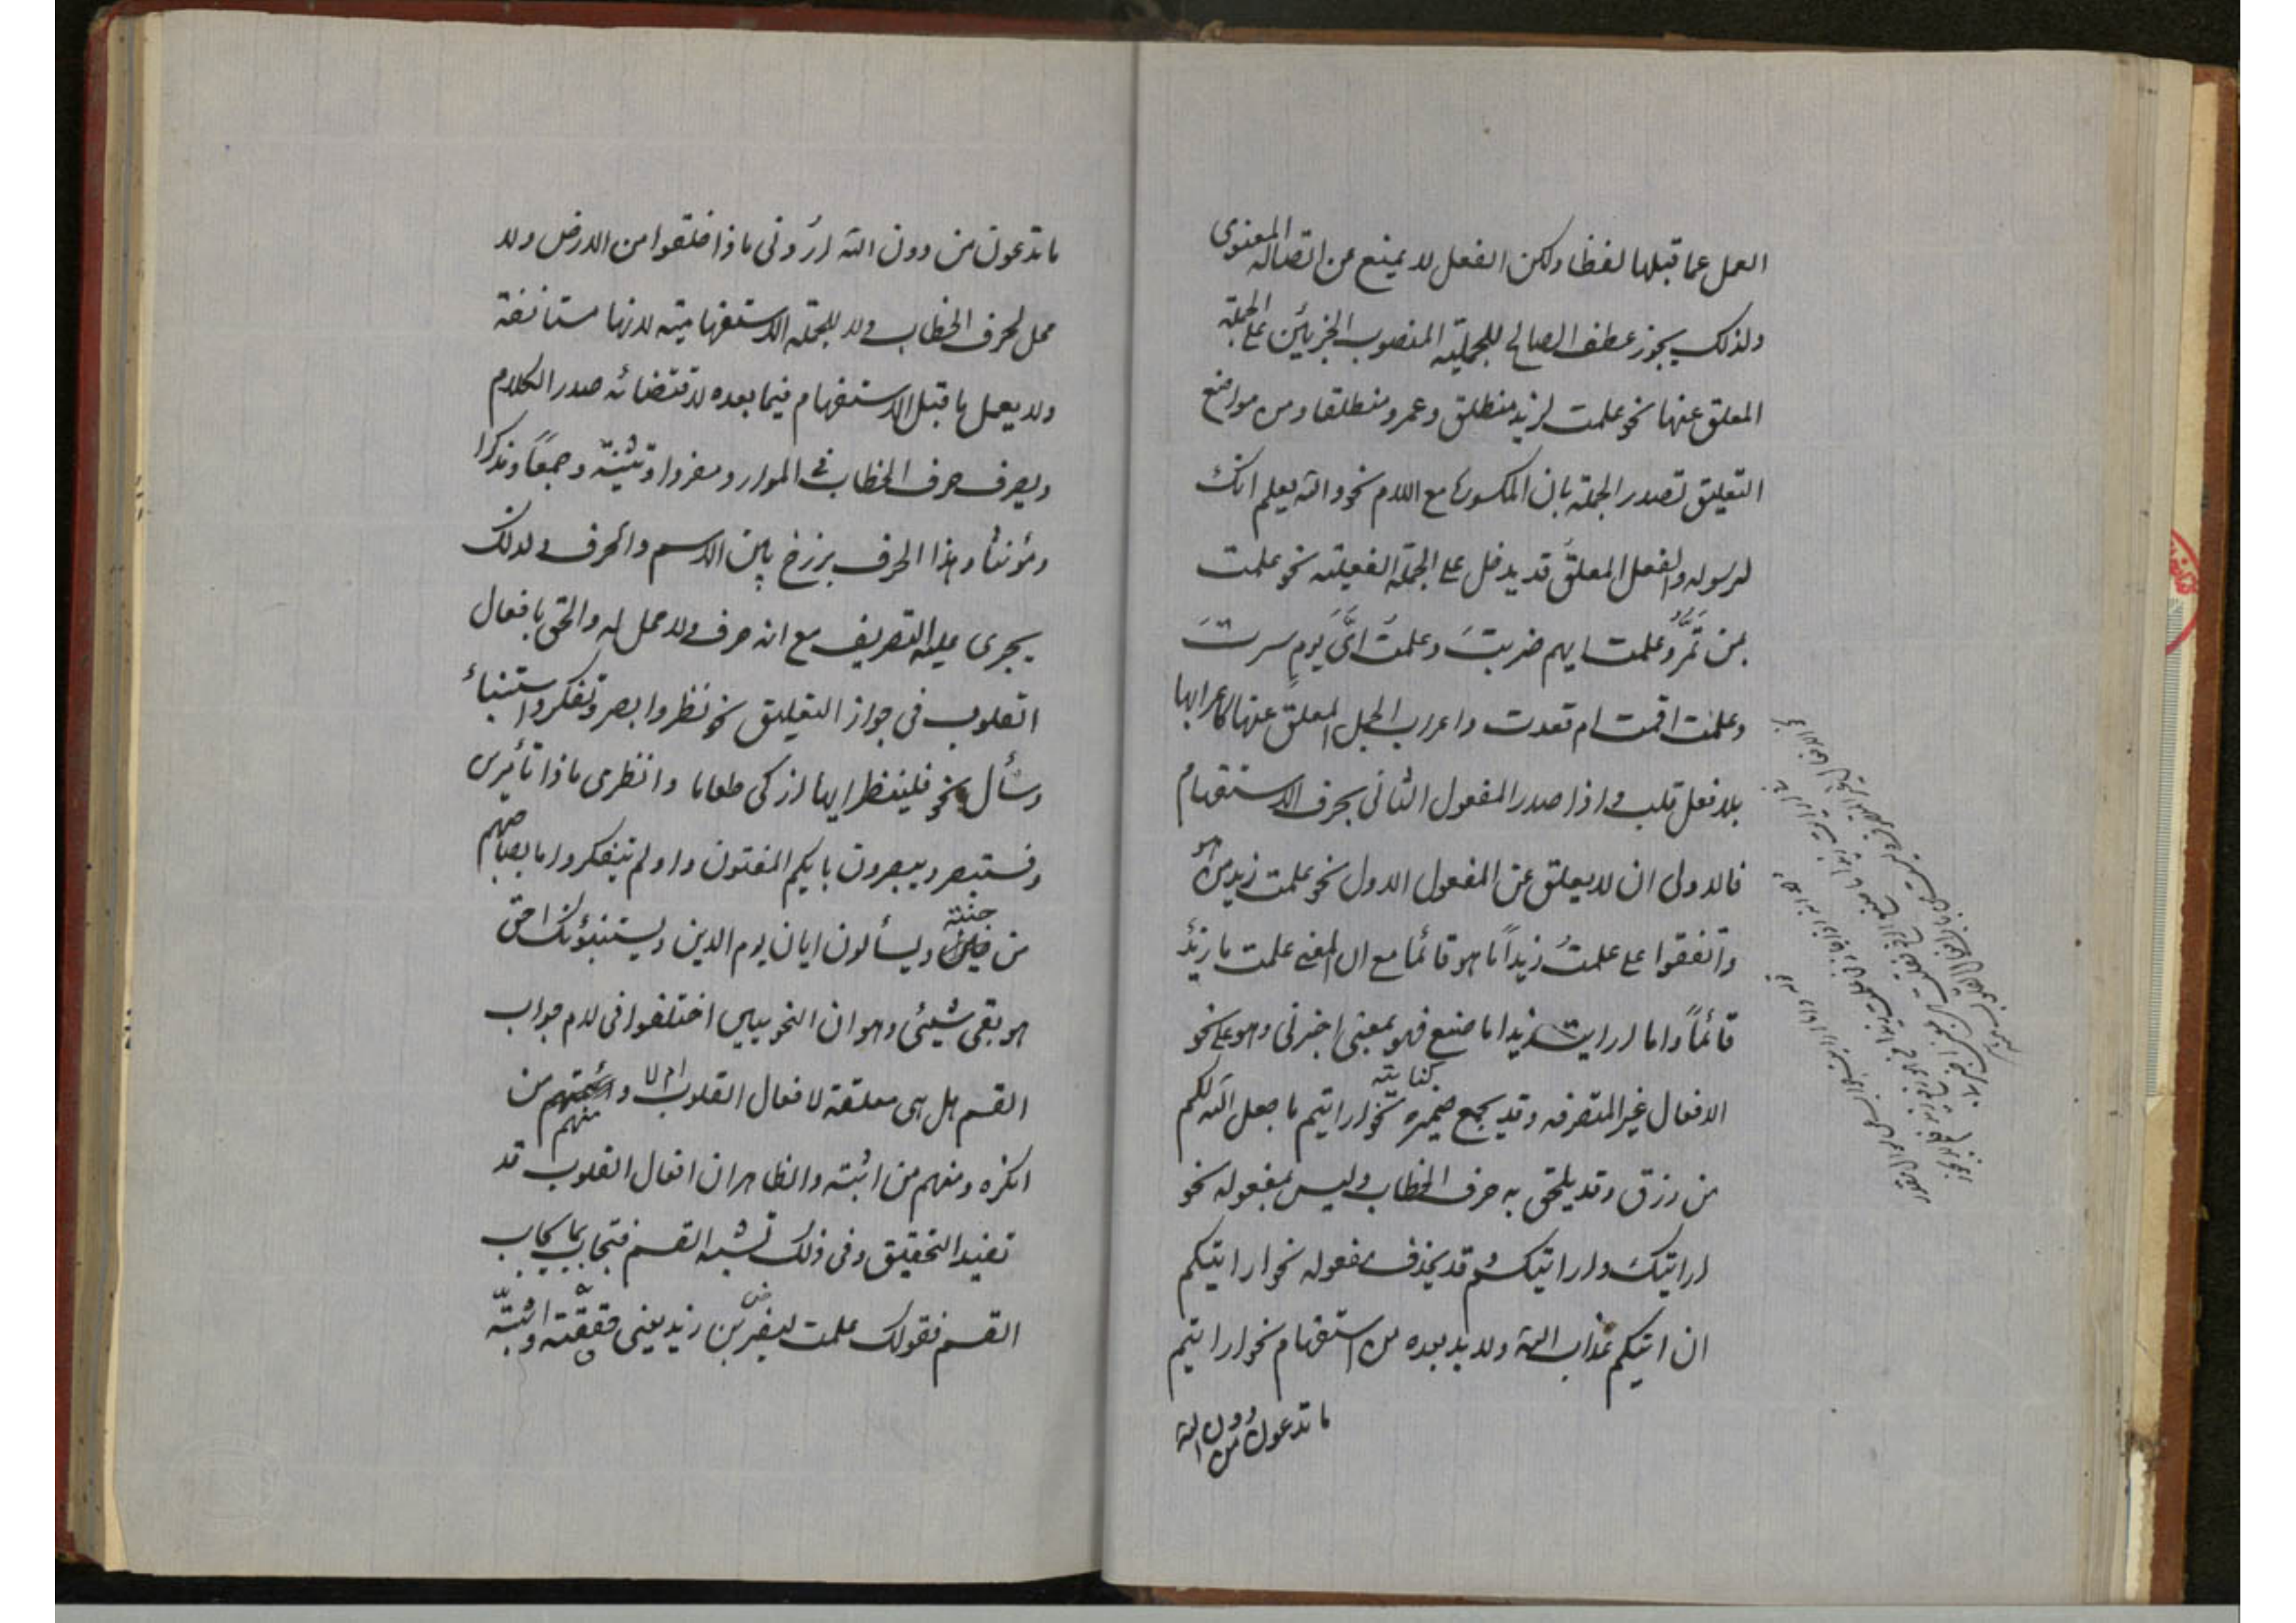 العمل عما قبلها لفظا ولكن الفعل لا يمنع من اتصاله المعنوى
ولذلك يجوز عطف الصالح للجملية المنصوب الجزئين على الجملة
المعلق عنها نحو علمت لزيد منطلق وعمرو منطلقا ومن مواضع
التعليق تصدر الجملة بان المكسورة مع اللام نحو والله يعلم انك
لرسوله والفعل المعلق قد يدخل على الجملة الفعلية نحو علمت
بمن تمر وعلمت ايهم ضربت وعلمت اىّ يوم سرت
وعلمت اقمت ام قعدت واعراب الجمل المعلق عنها كاعرابها
بلا فعل قلب واذا صدر المفعول الثانى بحرف الاستفهام
فالاولى ان لا يعلق عن المفعول الاول نحو علمت زيد من هو
واتفقوا على علمتُ زيداً ما هو قائما مع ان المعنى علمت ما زيدٌ
قائماً واما ارايت زيدا ما صنع فهو بمعنى اخبرنى وهو على نحو
الافعال غير المتصرفه وقد يجمع ضميره كناية نحو ارايتم ما جعل الله لكم
من رزق وقد يلحق به حرف الخطاب وليس بمفعوله نحو
ارايتك وارايتكم وقد يحذف مفعوله نحو ارايتكم
ان اتيكم عذاب الله ولا بد بعده من استفهام نحو ارايتم
ما تدعون من دون الله
ما تدعون من دون الله ارُونى ماذا خلقوا من الارض ولا
محل لحرف الخطاب ولا للجمله الاستفهاميته لانها مستانفة
ولا يعمل ما قبل الاستفهام فيما بعده لاقتضائه صدر الكلام
ويصرف حرف الخطاب فى الموارد مفردا وتثنية وجمعاً ومذكرا
ومؤنثا وهذا الحرف برزخ بين الاسم والحرف ولذلك
يجرى عليه التصريف مع انه حرف ولا محل له والحق بافعال
القلوب فى جواز التعليق نحو نظر وابصر وتفكر واستنباء
وسأل نحو فلينظر ايها ازكى طعاما وانظرى ماذا تأمرى
وفستبصر ويبصرون بايكم المفتون واولم يتفكروا ما بصاحبهم
من جنة ويسألون ايان يوم الدين ويستنبؤنك احق
هو بقى شيئى وهو ان النحويين اختلفوا فى لام جواب
القسم هل هى معلقة لافعال القلوب ام لا و منهم من
انكره ومنهم من اثبته والظاهر ان افعال القلوب قد
تفيد التحقيق وفى ذلك تشبه القسم فتجاب بما يجاب
القسم فقولك علمت ليضربن زيد يعنى حققته واثبتّه